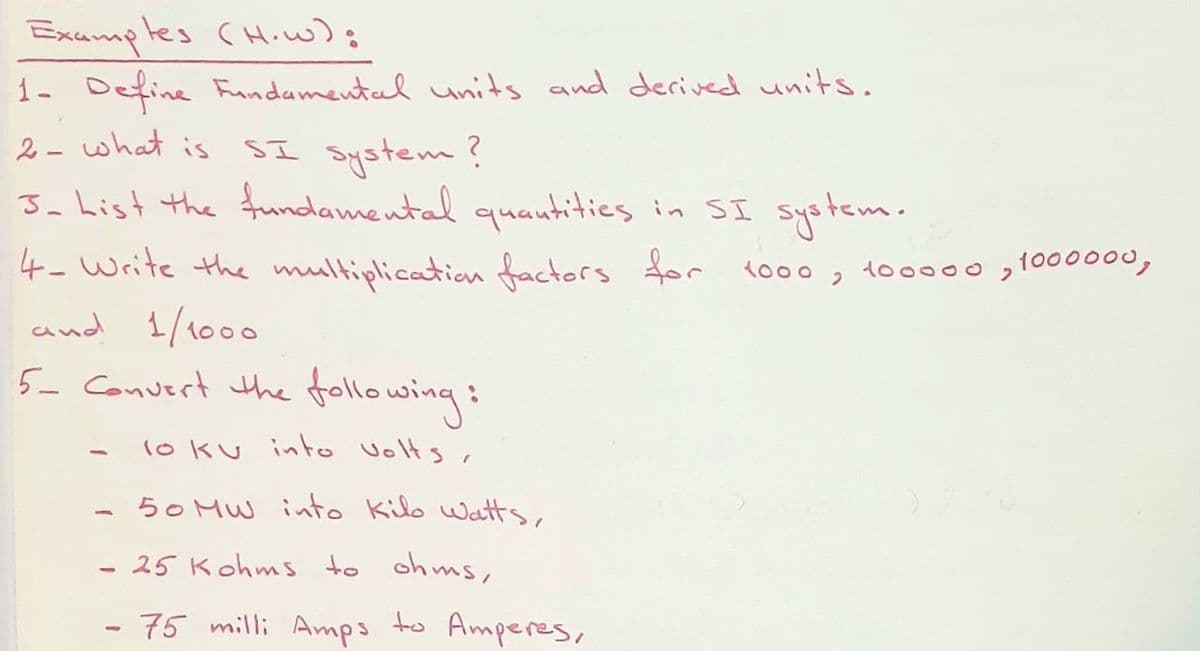 Examples (H.W):
1- Define Fundamental units and derived units.
2- what is SI system?
3- List the fundamental quantities in SI system.
4- Write the multiplication factors for 1000, 100000, 1000000,
and 1/1000
5- Convert the following:
- 10 KV into volts,
- 50 MW into Kilo Watts,
- 25 Kohms to ohms,
- 75 milli Amps to Amperes,